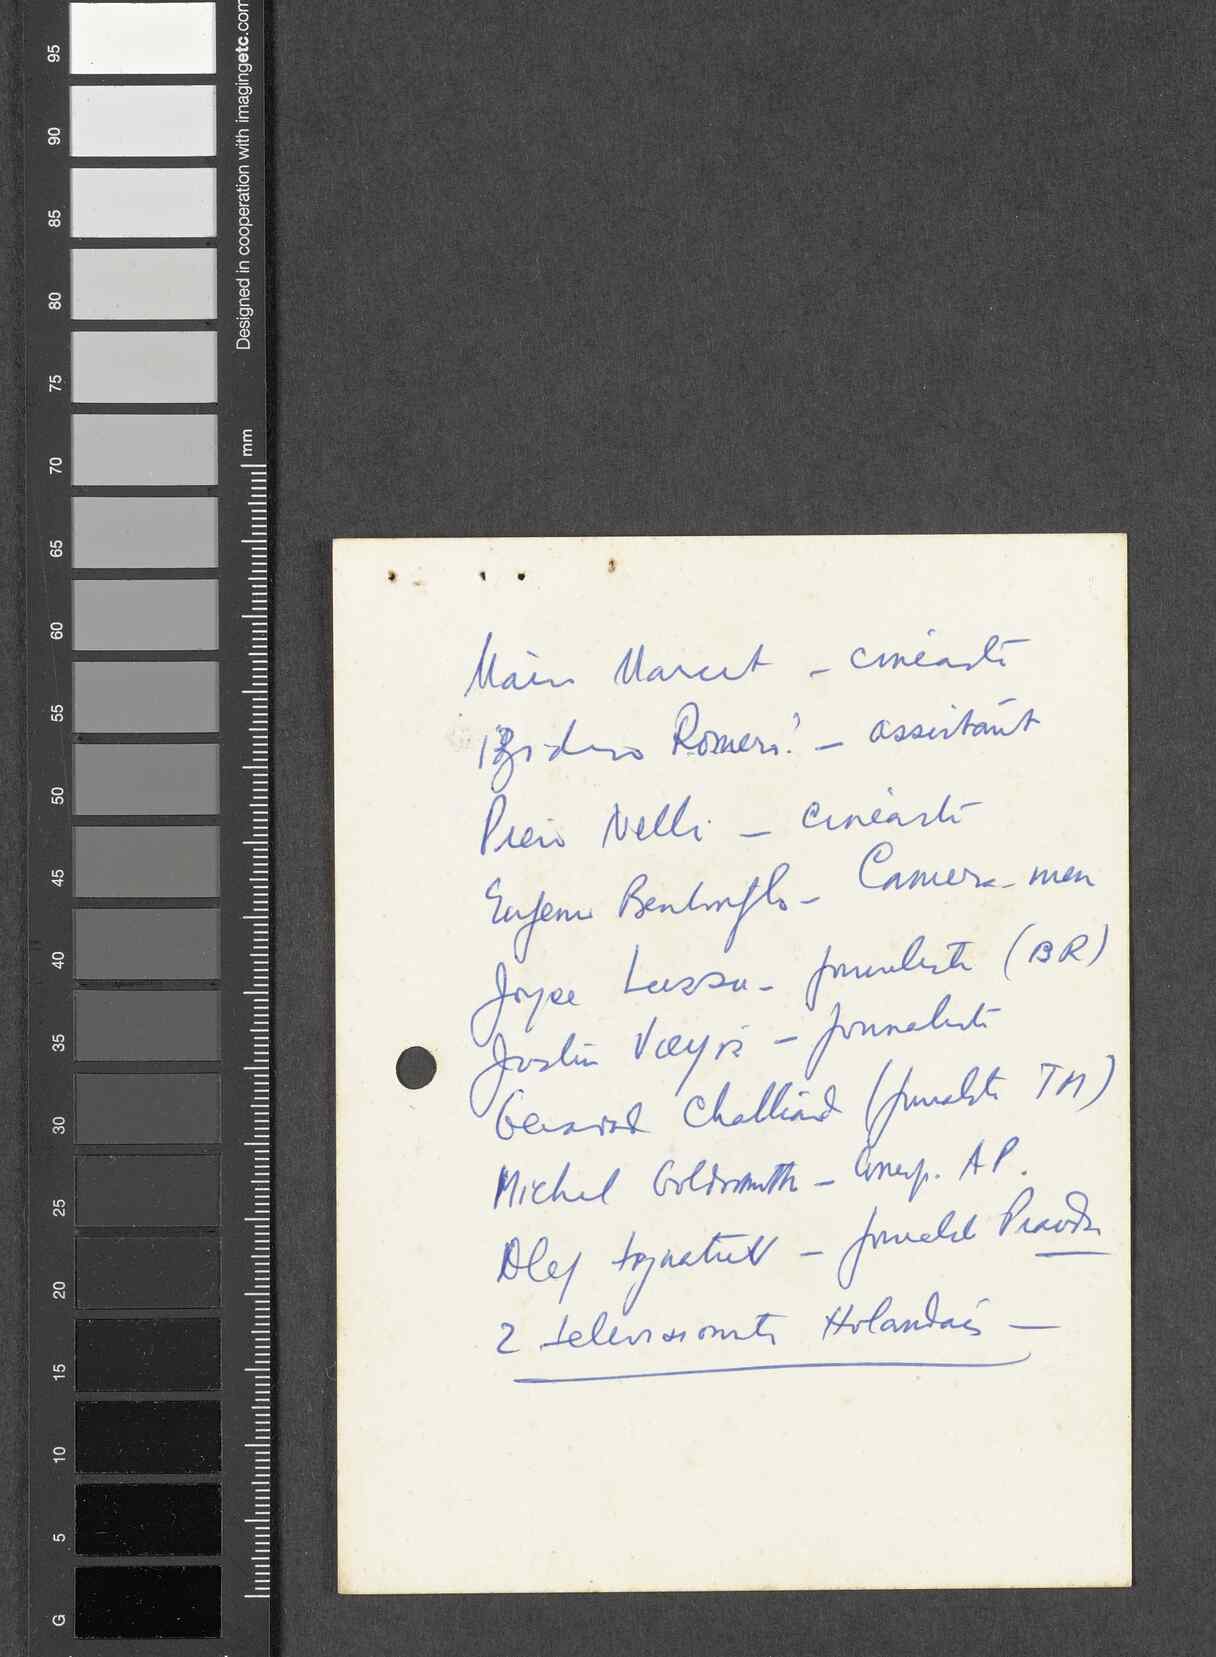 95
90
85
80
75
70
65
60
55
50
45
40
35
30
25
20
15
10
5
G
Designed in cooperation with imagingetc.com
mm
Mário Marret – cinéaste
Isidro Romero – assistant
Piero Nelli – cinéaste
Eugenio Bentivoglio – Camera-men
Joyce Lussu – journaliste (BR)
Justin Vieyra – journaliste
Gerard Challiand (journaliste TM)
Michel Goldsmith – Corresp. AP.
Oleg Ignatiev – journalist Pravda
2 televisionists Holandais –